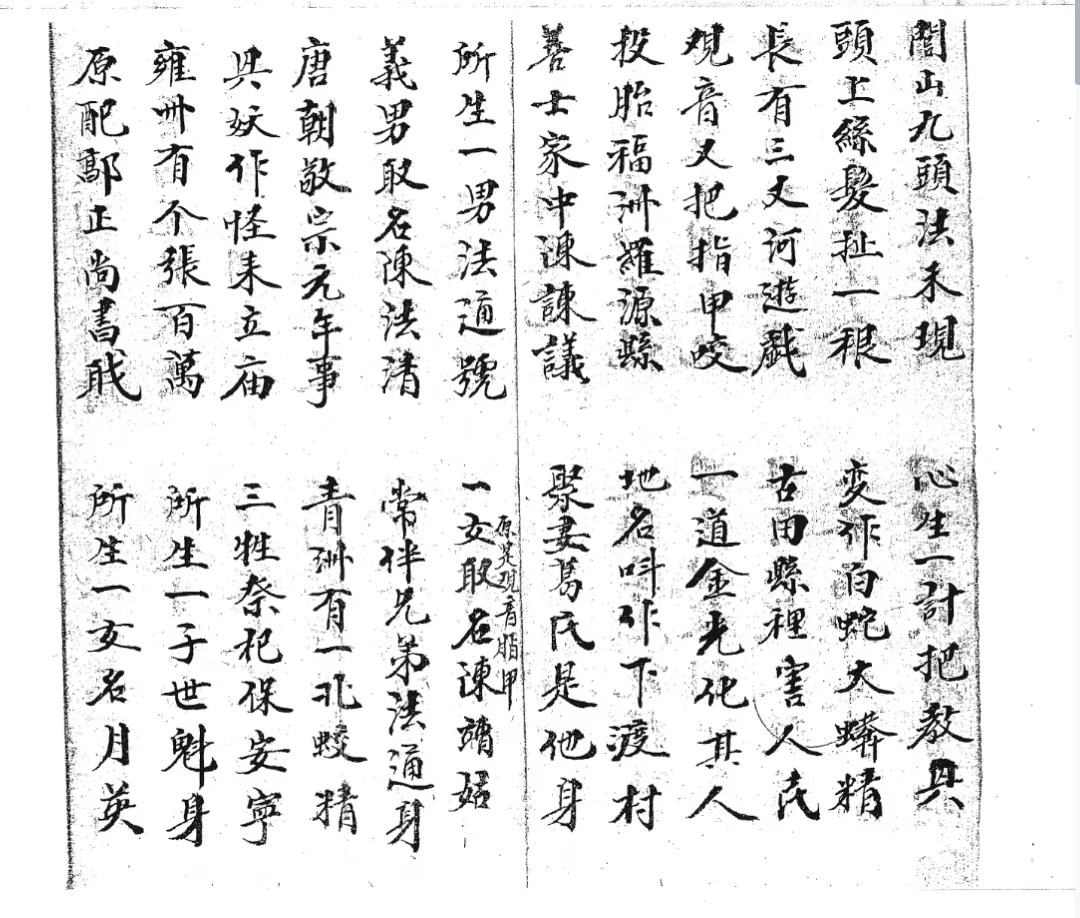 閭山九頭法未現 心生一計把教興
頭上絲髮扯一根 变作白蛇大蟒精
長有三丈河遊戲 古田縣裡害人民
观音又把指甲咬 一道金光化其人
投胎福洲羅源縣 地名呌作下渡村
善士家中諫諫議 娶妻葛氏是他身
所生一男法通號 一女取名陳靖姑
原是观音脂甲
義男取名陳法清 常伴兄弟法通身
唐朝敬宗元年事 青洲有一北蛟精
興妖作怪未立庙 三牲祭祀保安寧
雍州有个張百萬 所生一子世魁身
原配鄢正尚書戝 所生一女名月英